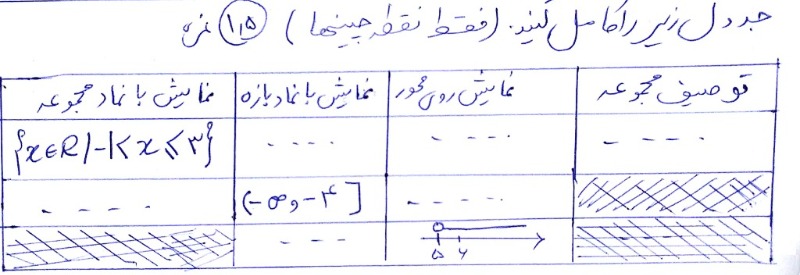 جدول زیر را کامل کنید. (فقط نقطه چینها) ۱,۵ نمره
توصیف مجموعه نمایش روی محور نمایش با نماد بازه نمایش با نماد مجموعه
---- ---- ---- {x∈R|-1<x≤۳}
---- (-∞و-۴] ----
۵ ۶ ---